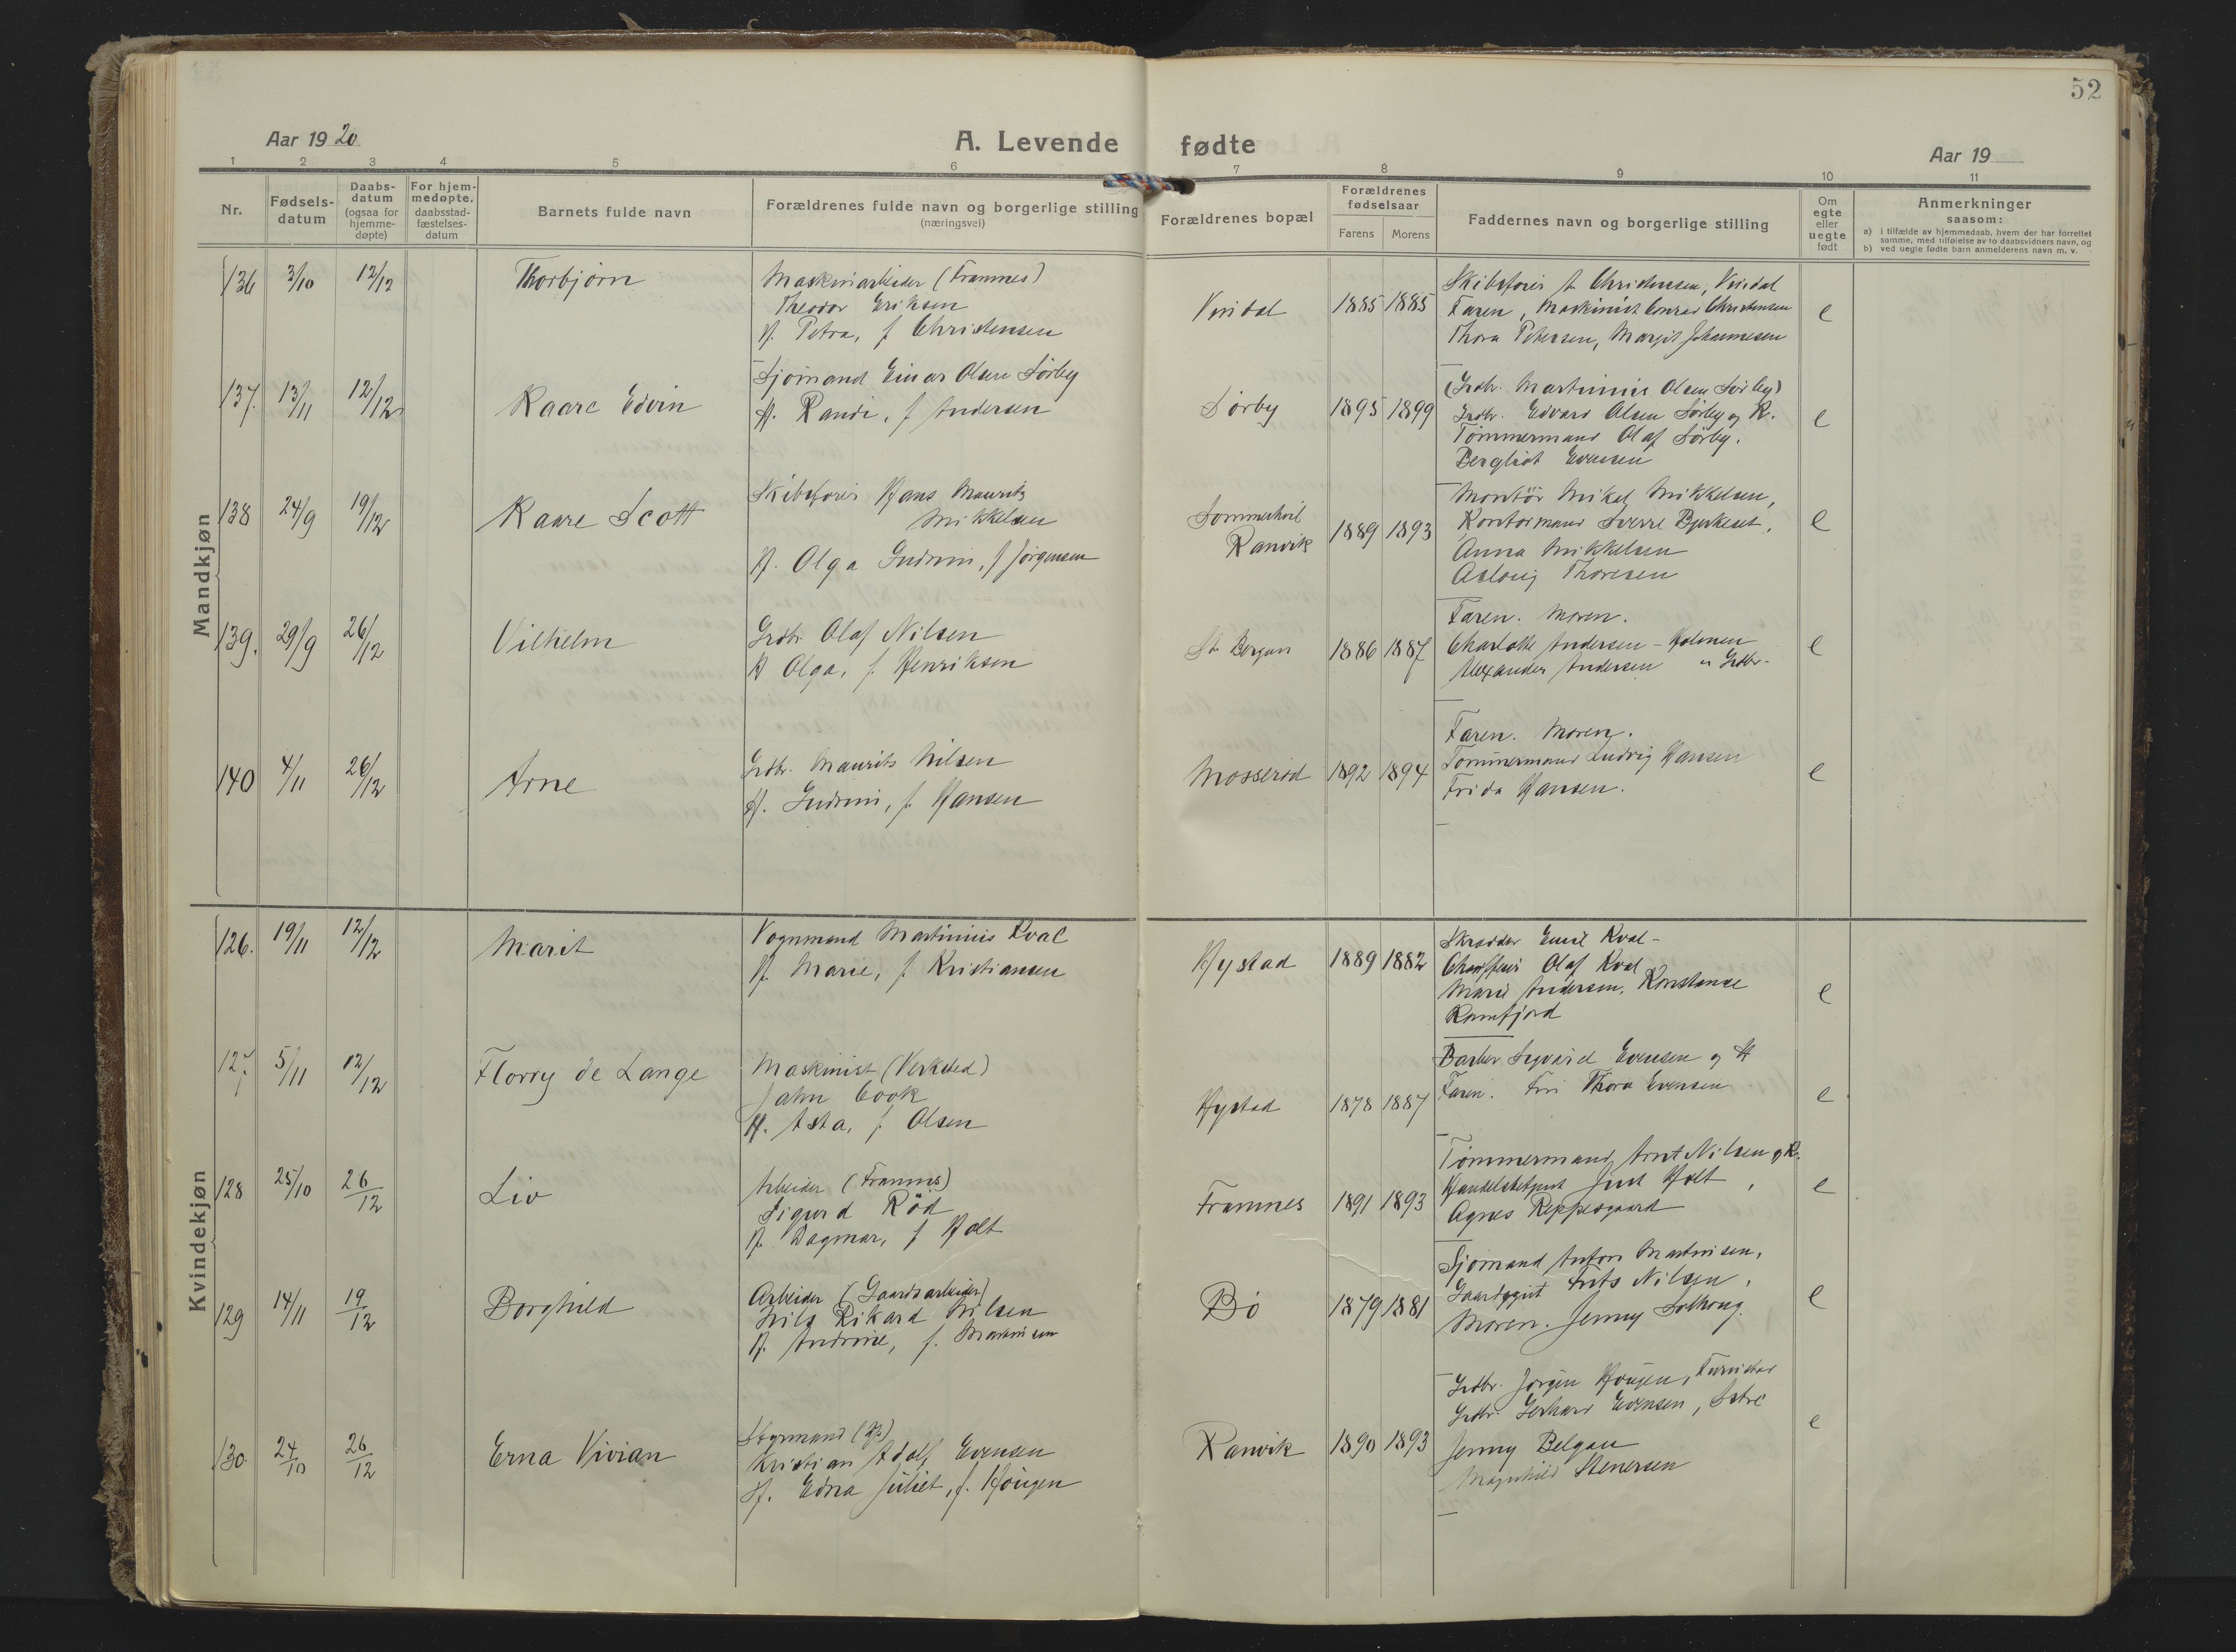 52
Aar 1920
A. Levende fødte
Aar 19
1 2 3 4 5 6 7 8 9 10 11
Nr.
Fødsels-
datum
Daabs-
datum
(ogsaa for
hjemme-
døpte)
For hjem-
medøpte.
daabsstad-
fæstelses-
datum
Barnets fulde navn
Forældrenes fulde navn og borgerlige stilling
(næringsvei)
Forældrenes bopæl
Forældrenes
fødselsaar
Farens Morens
Faddernes navn og borgerlige stilling
Om
egte
eller
uegte
født
Anmerkninger
saasom:
a) i tilfælde av hjemmedaab, hvem der har forrettet
samme, med tilføielse av to daabsvidners navn, og
b) ved uegte fødte barn anmelderens navn m. v.
Mandkjøn
136 3/10 12/12 Thorbjørn
Maskinarbeider (Framnes)
Theodor Eriksen
H. Petra, f Christensen
Vindal 1885 1885
Skibsfører A Christensen, Vindal
Faren, Maskinist Conrad Christensen
Thora Petersen, Margit Johannesen
e
137. 13/11 12/12 Kaare Edvin
Sjømand Einar Olsen Sørby
H. Randi, f Andersen
Sørby 1895 1899
(Grdbr. Martinius Olsen Sørby)
Grdbr. Edvard Olsen Sørby og K.
Tømmermand Olaf Sørby.
Bergliot Evensen
e
138 24/9 19/12 Kaare Scott
Skibsfører Hans Maurits
Mikkelsen
H. Olga Gudrun, f Jørgensen
Ranvik 1889 1893
Montør Mikal Mikkelsen,
Kontormand Sverre
Anna Mikkelsen
Aslaug Thoresen
e
139. 29/9 26/12 Vilhelm
Grdbr Olaf Nilsen
H Olga, f. Henriksen
St. Bergan 1886 1887
Faren. Moren.
Charlotte Andersen - Holmen
Alexander Andersen " Grdbr-
e
140 4/11 26/12 Arne
Grdbr. Maurits Nilsen
H. Gudrun, f. Hansen
Mosserød 1892 1894
Faren. Moren.
Tømmermand Ludvig Hansen
Frida Hansen.
e
Kvindekjøn
126. 19/11 12/12 Marit
Vognmand Martinius Kval
H. Marie, f. Kristiansen
Hystad 1889 1882
Skrædder Emil Kval-
Chauffeur Olaf Kval
Marie Andersen. Konstanse
Ramfjord
e
127. 5/11 12/12 Florry de Lange
Maskinist (Verksted)
John Cook
H. Asta, f. Olsen
Hystad 1878 1887
Barber Sigvard Evensen og H
Faren. Fru Thora Evensen
e
128 25/10 26/12 Liv
Arbeider (Framnes)
Sigurd Rød
H. Dagmar, f Holt
Framnes 1891 1893
Tømmermand Arnt Nilsen og K.
Holt,
Agnes Reppesgaard
e
129 14/11 19/12 Borghild
Arbeider (Gaardsarbeider)
Nils Rikard Nilsen
H. Andrine, f. Martinsen
Bø 1879 1881
Sjømand Anton Martinsen,
Gaardsgut Frits Nilsen,
Moren. Jenny
e
130. 24/10 26/12 Erna Vivian
Styrmand
Kristian Adolf Evensen
H. Edna Juliet, f. Hougen
Ranvik 1890 1893
Grdbr. Jørgen Hougen,
Grdbr. Gerhard Evensen,
Jenny Belgau
Magnhild Stenersen
e